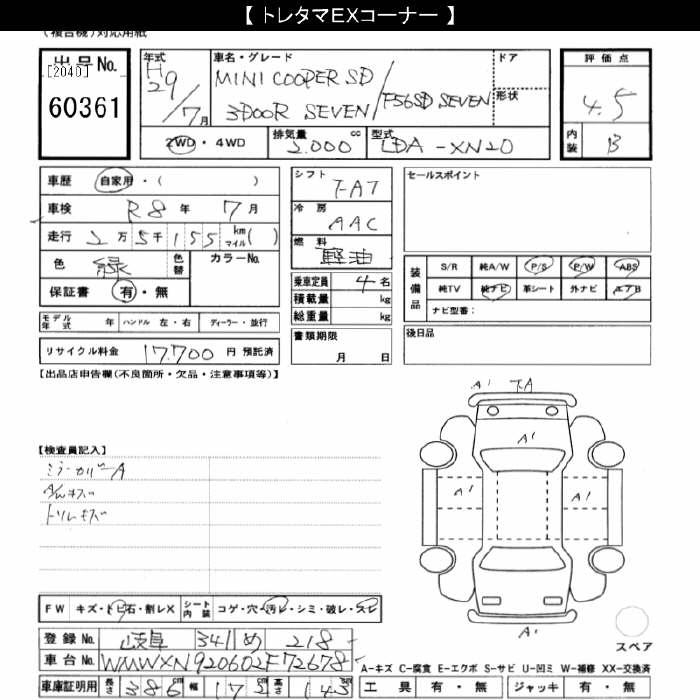 【 トレタマEXコーナー 】
(複合機)対応用紙
出品No.
[2040]
60361
年式 H29/7月
車名・グレード
MINI COOPER SD
3DOOR SEVEN/F56SD SEVEN
ドア
形状
2WD・4WD
排気量 2.000 cc
型式 LDA-XN20
評価点
4.5
内装 B
車歴 自家用・( )
車検 R8年 7月
走行 2万5千155 km マイル( )
色 緑 色替 カラーNo.
保証書 有・無
シフト FAT
冷房 AAC
燃料 軽油
乗車定員 4名
積載量 kg
総重量 kg
セールスポイント
装備品
S/R 純A/W P/S P/W ABS
純TV 純ナビ 革シート 外ナビ エアB
ナビ型番:
モデル年式 年 ハンドル 左・右 ディーラー・並行
リサイクル料金 17,700 円 預託済
書類期限
月 日
後日品
【出品店申告欄(不良箇所・欠品・注意事項等)】
A1
A1
A1 A1
A1
【検査員記入】
ミラーカバーA
A/Wキズ
トリムキズ
FW キズ・トビ石・割レX シート内装 コゲ・穴・汚レ・シミ・破レ・スレ
スペア
登録No. 岐阜 341 め 218
車台No. WMWXN920602F72678
A-キズ C-腐食 E-エクボ S-サビ U-凹ミ W-補修 XX-交換済
車庫証明用 長さ 386 cm 幅 172 cm 高さ 143 cm
工具 有・無 ジャッキ 有・無